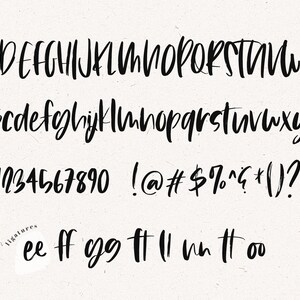 DEFGHIJKLMNOPQRSTUVW
cdefghijklmnopqrstuvwxy
1234567890 !@#$%^&*()?
ligatures
ee ff gg tt ll nn tt oo